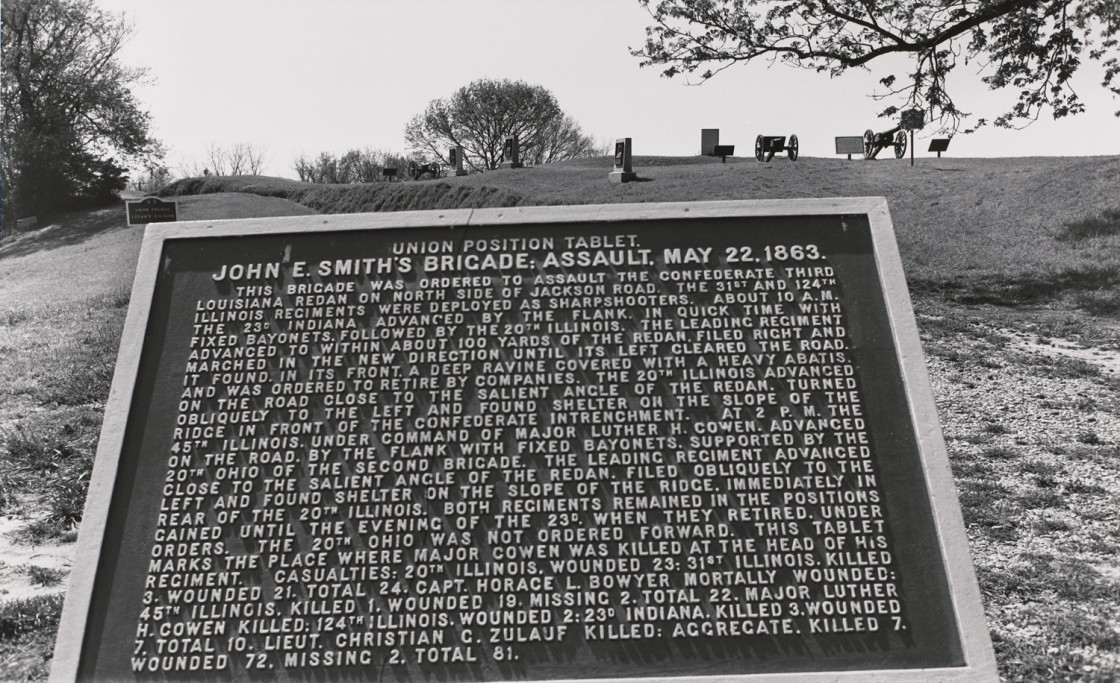 UNION POSITION TABLET.
JOHN E. SMITH'S BRIGADE; ASSAULT, MAY 22, 1863.
THIS BRIGADE WAS ORDERED TO ASSAULT THE CONFEDERATE THIRD
LOUISIANA REDAN ON NORTH SIDE OF JACKSON ROAD. THE 31ST AND 124TH
ILLINOIS REGIMENTS WERE DEPLOYED AS SHARPSHOOTERS. ABOUT 10 A.M.
THE 23D INDIANA ADVANCED BY THE FLANK, IN QUICK TIME WITH
FIXED BAYONETS, FOLLOWED BY THE 20TH ILLINOIS. THE LEADING REGIMENT
ADVANCED TO WITHIN ABOUT 100 YARDS OF THE REDAN, FILED RIGHT AND
MARCHED IN THE NEW DIRECTION UNTIL ITS LEFT CLEARED THE ROAD.
IT FOUND, IN ITS FRONT, A DEEP RAVINE COVERED WITH A HEAVY ABATIS,
AND WAS ORDERED TO RETIRE BY COMPANIES. THE 20TH ILLINOIS ADVANCED
ON THE ROAD CLOSE TO THE SALIENT ANGLE OF THE REDAN, TURNED
OBLIQUELY TO THE LEFT AND FOUND SHELTER ON THE SLOPE OF THE
RIDGE IN FRONT OF THE CONFEDERATE INTRENCHMENT. AT 2 P. M. THE
45TH ILLINOIS, UNDER COMMAND OF MAJOR LUTHER H. COWEN, ADVANCED
ON THE ROAD, BY THE FLANK WITH FIXED BAYONETS, SUPPORTED BY THE
20TH OHIO OF THE SECOND BRIGADE. THE LEADING REGIMENT ADVANCED
CLOSE TO THE SALIENT ANGLE OF THE REDAN, FILED OBLIQUELY TO THE
LEFT AND FOUND SHELTER ON THE SLOPE OF THE RIDGE, IMMEDIATELY IN
REAR OF THE 20TH ILLINOIS. BOTH REGIMENTS REMAINED IN THE POSITIONS
GAINED UNTIL THE EVENING OF THE 23D, WHEN THEY RETIRED, UNDER
ORDERS. THE 20TH OHIO WAS NOT ORDERED FORWARD. THIS TABLET
MARKS THE PLACE WHERE MAJOR COWEN WAS KILLED AT THE HEAD OF HIS
REGIMENT. CASUALTIES: 20TH ILLINOIS, WOUNDED 23; 31ST ILLINOIS, KILLED
3, WOUNDED 21, TOTAL 24, CAPT. HORACE L. BOWYER MORTALLY WOUNDED;
45TH ILLINOIS, KILLED 1, WOUNDED 19, MISSING 2, TOTAL 22, MAJOR LUTHER
H. COWEN KILLED; 124TH ILLINOIS, WOUNDED 2; 23D INDIANA, KILLED 3, WOUNDED
7, TOTAL 10, LIEUT. CHRISTIAN G. ZULAUF KILLED; AGGREGATE, KILLED 7,
WOUNDED 72, MISSING 2, TOTAL 81.